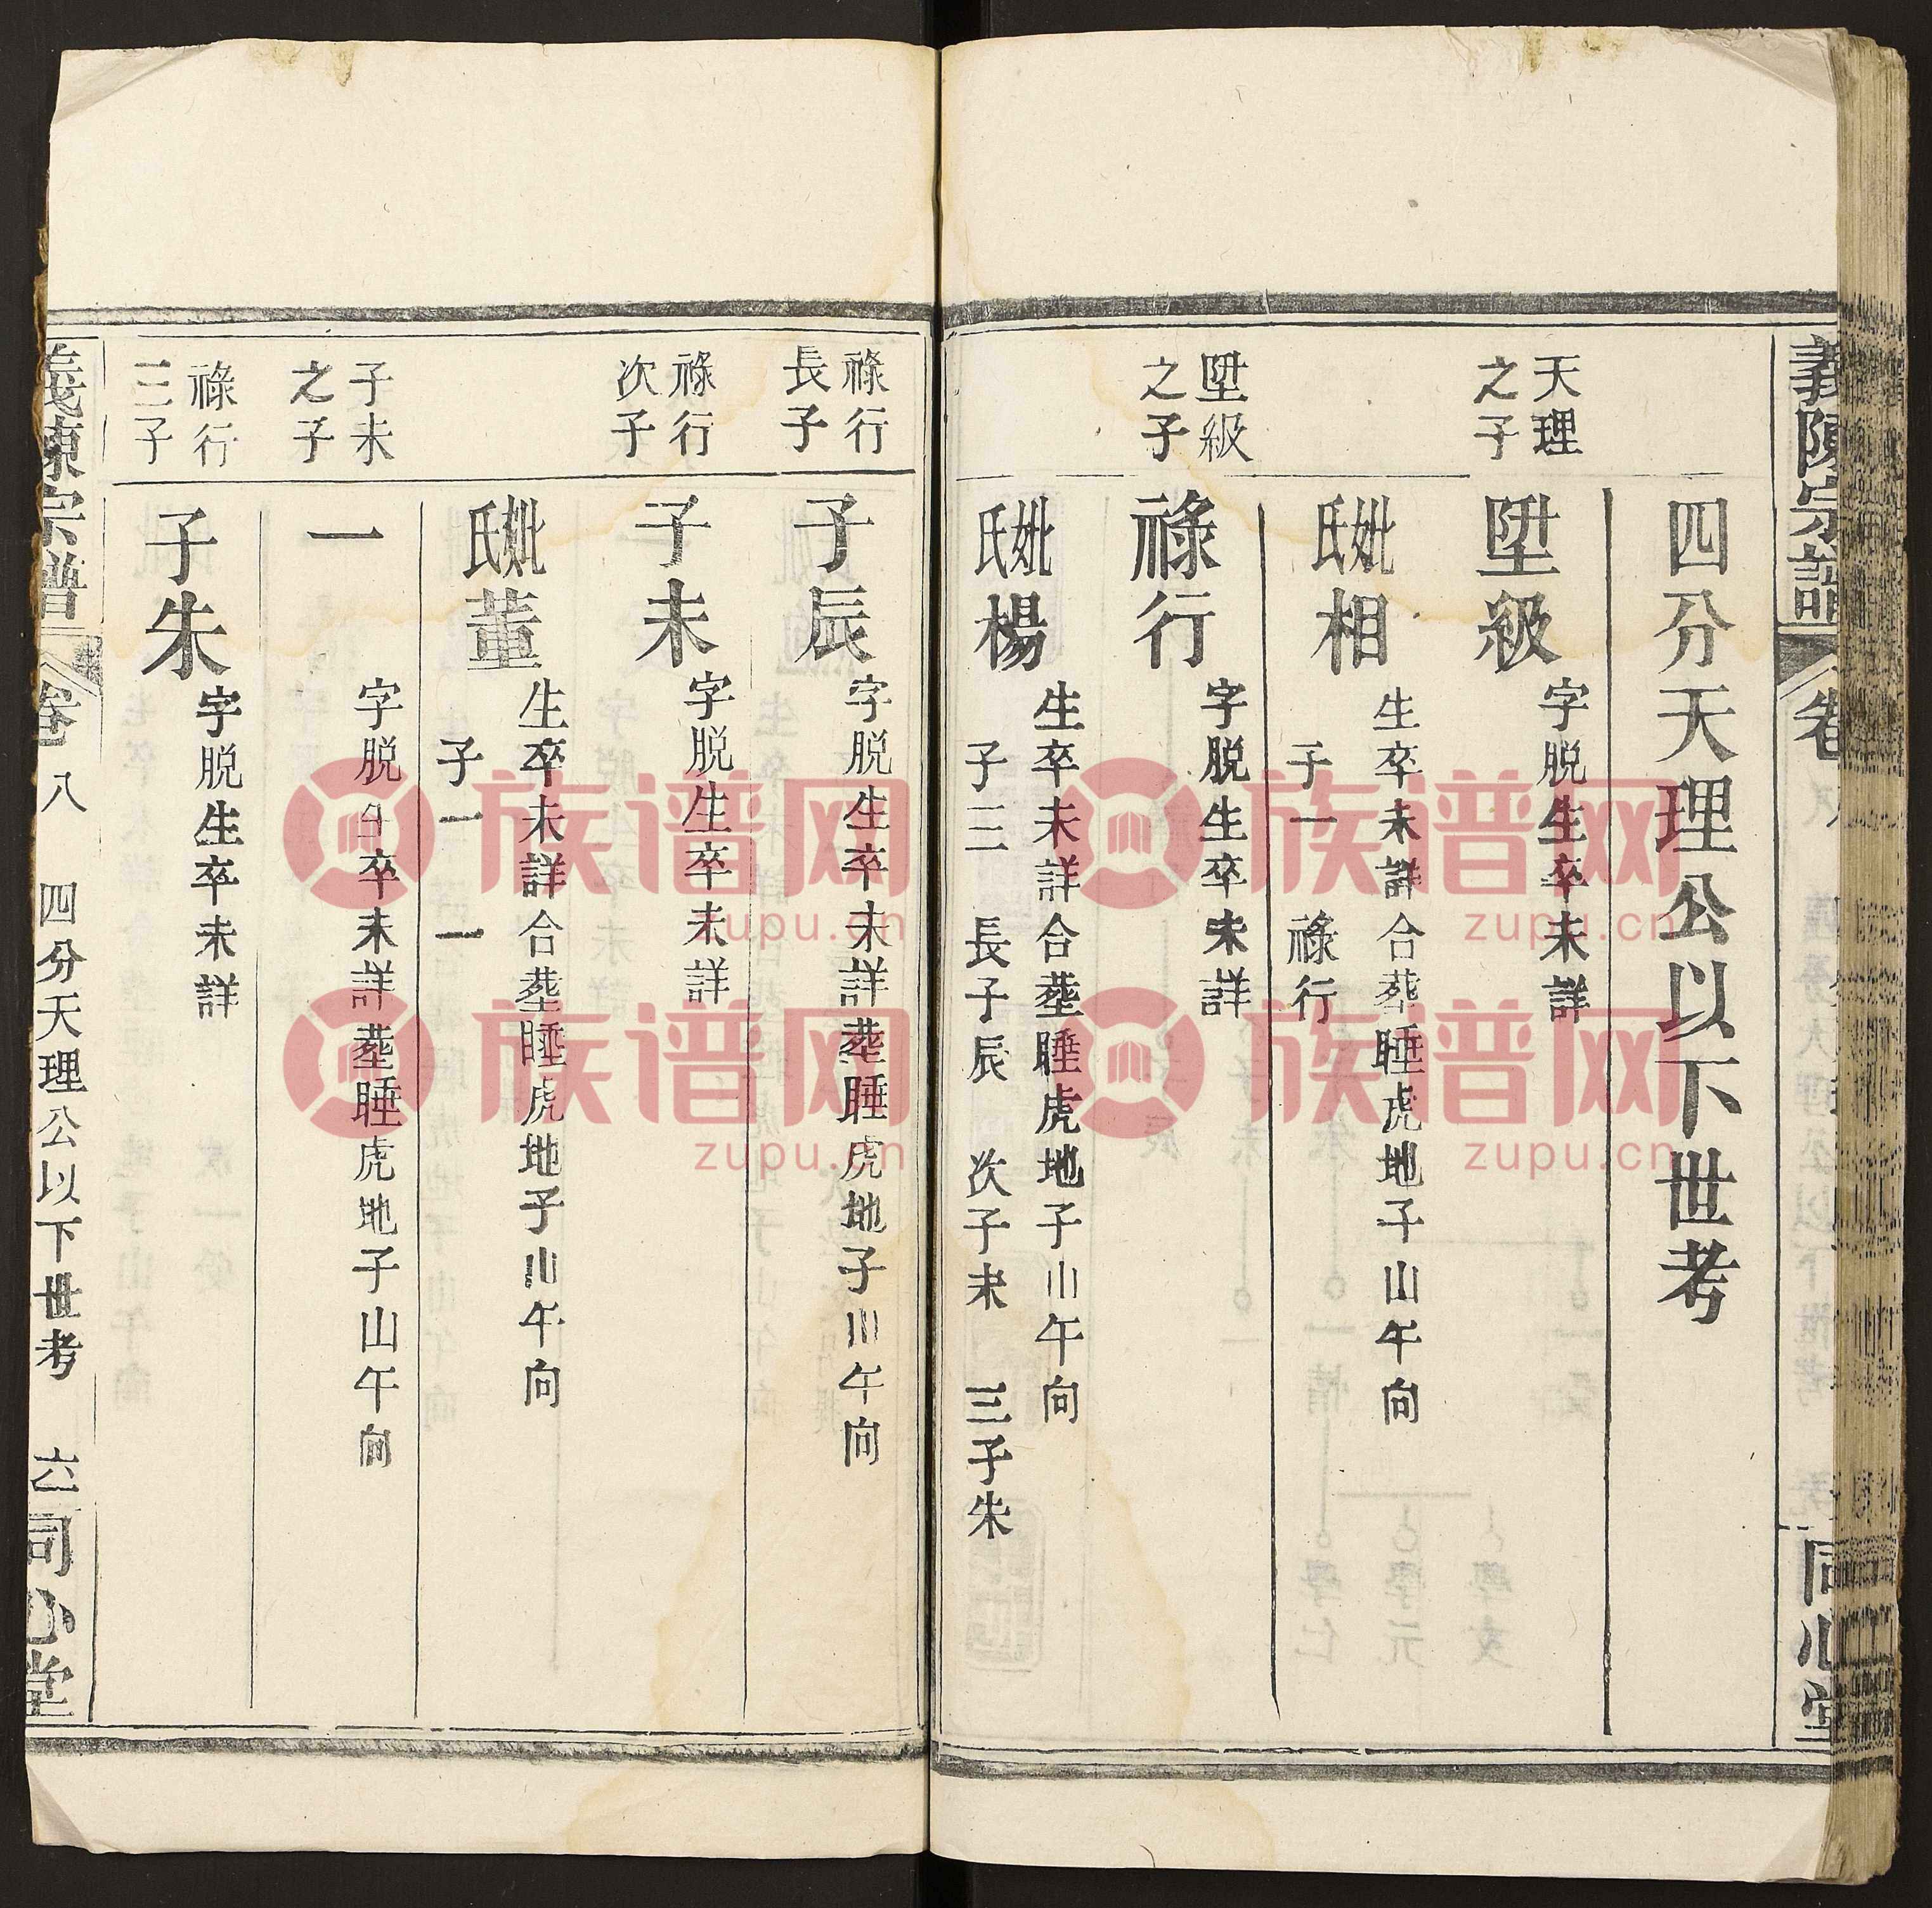 義陳宗譜 卷
同心堂
四分天理公以下世考
天理
之子
陞級
字脱生卒未詳
妣
氏
相
生卒未詳合葬睡虎地子山午向
子一 祿行
陞級
之子
祿行
字脱生卒未詳
妣
氏
楊
生卒未詳合塟睡虎地子山午向
子三 長子辰 次子未 三子朱
祿行
長子
子辰
字脱生卒未詳塟睡虎地子山午向
祿行
次子
子未
字脱生卒未詳
妣
氏
董
生卒未詳合塟睡虎地子山午向
子一 一
子未
之子
一
字脱生卒未詳塟睡虎地子山午向
祿行
三子
子朱
字脱生卒未詳
義陳宗譜 卷八 四分天理公以下世考 六 同心堂
族谱网
zupu.cn
族谱网
zupu.cn
族谱网
zupu.cn
族谱网
zupu.cn